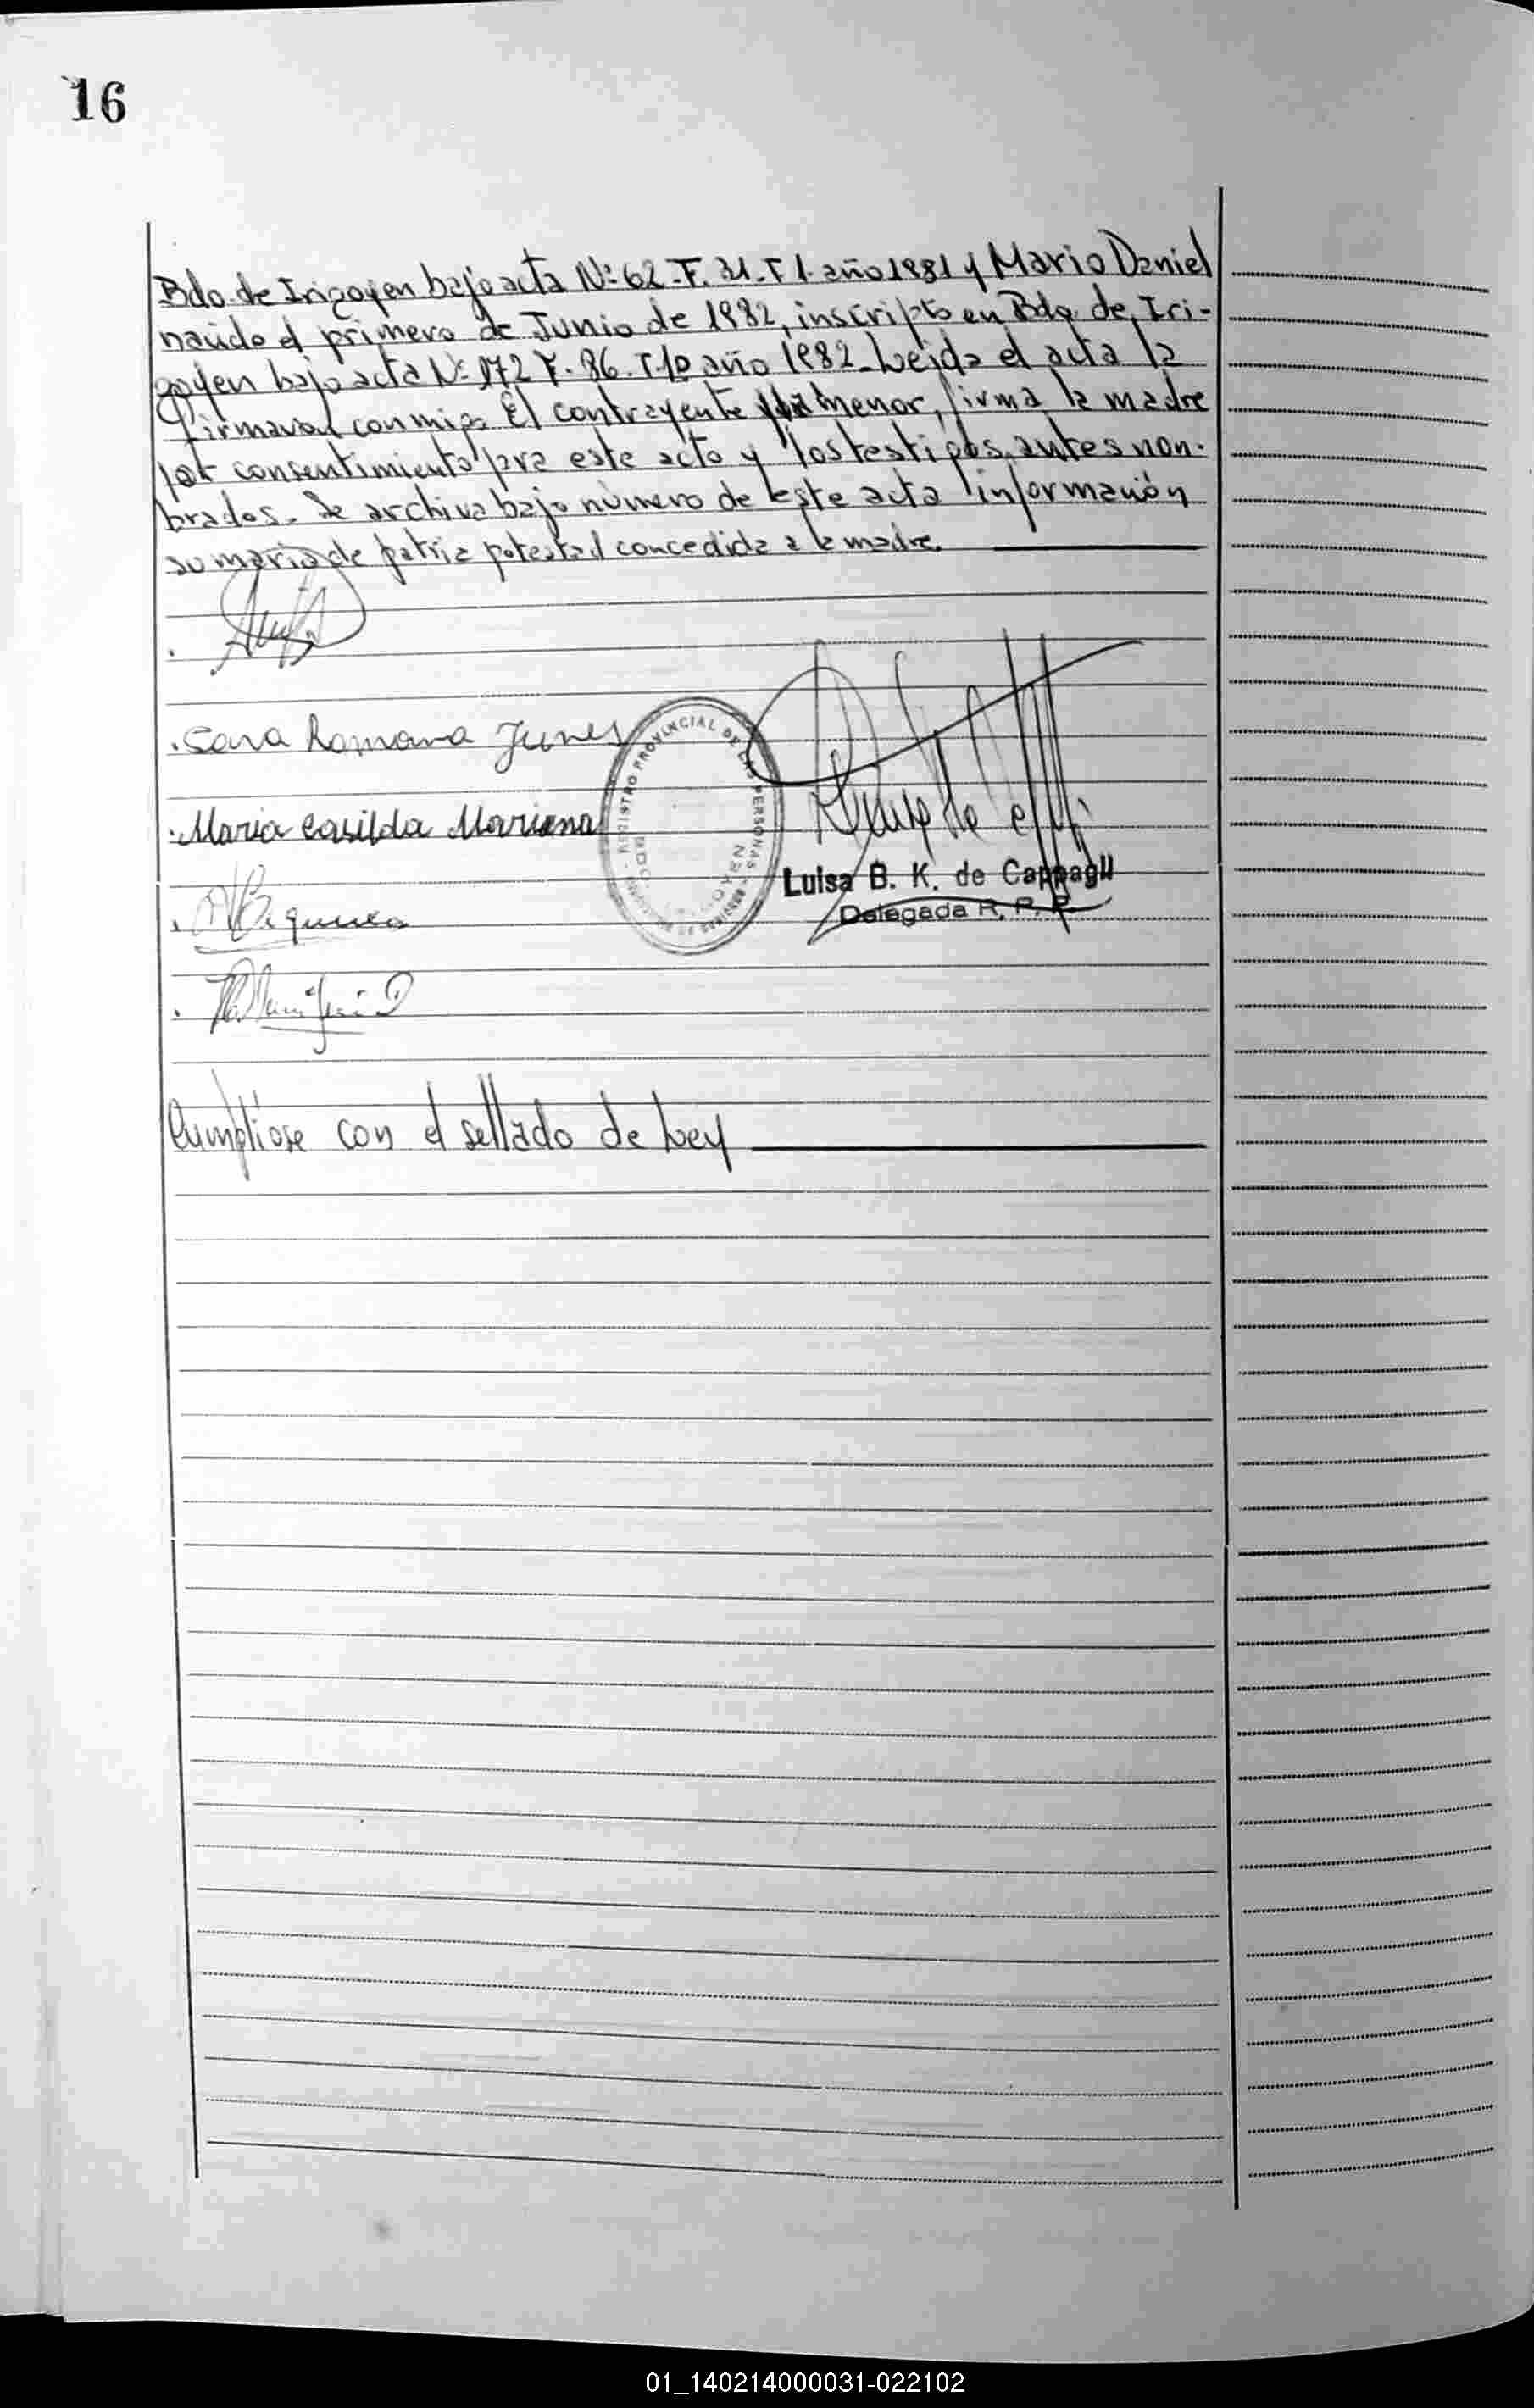 16
Bdo. de Irigoyen bajo acta Nº 62. F. 31. T 1. año 1981 y Mario Daniel
nacido el primero de Junio de 1982, inscripto en Bdo. de Iri-
goyen bajo acta Nº 172 F. 86. T. 1º año 1982. Leída el acta la
firmaron conmigo El contrayente menor, firma la madre
por consentimiento pra este acto y los testigos antes non-
brados. Se archiva bajo número de este acta información
sumaria de patria potestad concedida a la madre.
Sara Romana Junes
REGISTRO PROVINCIAL DE LAS PERSONAS
Maria Casilda Mariana
Luisa B. K. de Cappagli
Delegada R. P. P.
Cumpliose con el sellado de Ley
01_140214000031-022102